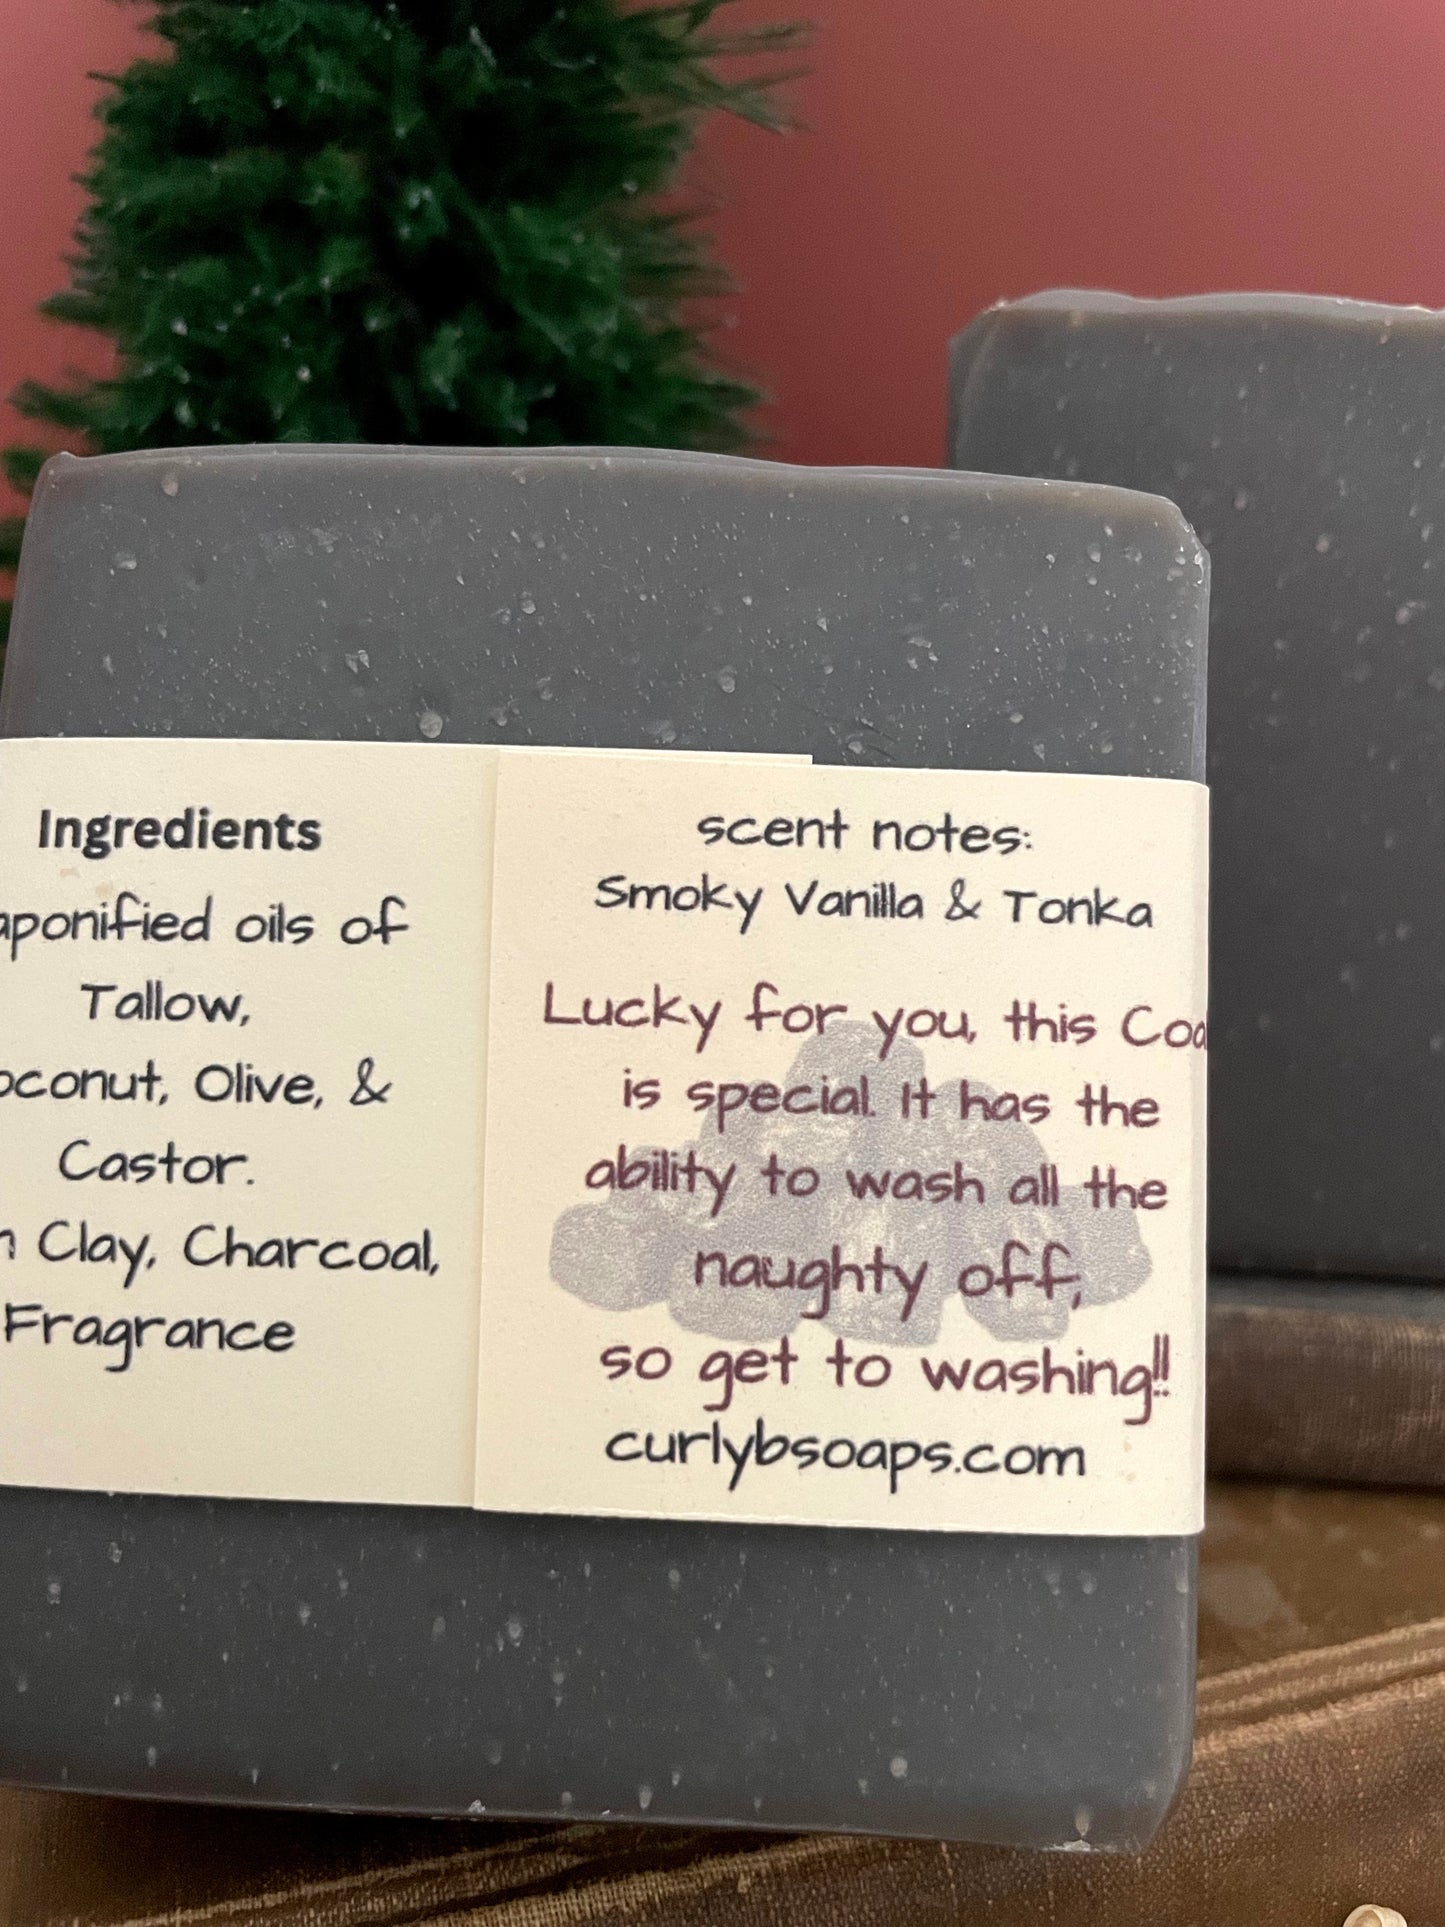 Ingredients
aponified oils of
Tallow,
oconut, Olive, &
Castor.
n Clay, Charcoal,
Fragrance
scent notes:
Smoky Vanilla & Tonka
Lucky for you, this Coa
is special. It has the
ability to wash all the
naughty off,
so get to washing!!
curlybsoaps.com